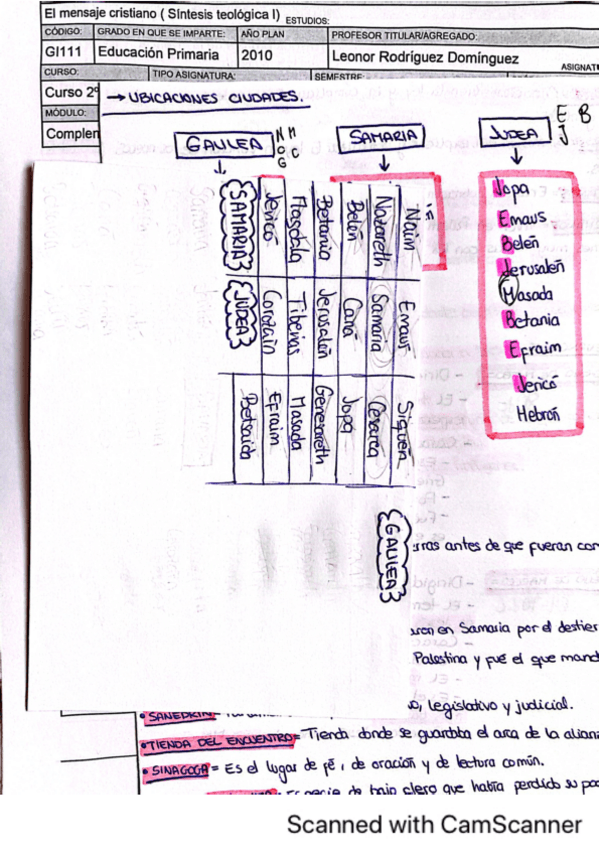 El mensaje cristiano ( Síntesis teológica I) ESTUDIOS:
CÓDIGO: GRADO EN QUE SE IMPARTE: AÑO PLAN PROFESOR TITULAR/AGREGADO:
GI111 Educación Primaria 2010 Leonor Rodríguez Domínguez
CURSO: TIPO ASIGNATURA: SEMESTRE: ASIGNAT
Curso 2º → UBICACIONES CIUDADES.
MÓDULO:
Complen
GALILEA N M C G
SAMARIA
JUDEA E B J
Jopa
Emaus
Belén
Jerusalén
Masada
Betania
Efraim
Jericó
Hebrón
Naim Emaus Siquén
Nazareth Samaria Cesarea
Belén Caná Jopa
Betania Jerusalén Genesareth
Magdala Tiberias Masada
Jericó Corozain Efraim
Betsaida
{SAMARIA}
{JUDEA}
{GALILEA}
ras antes de que fueran con
en Samaria por el destier
Palestina y fué el que mand
legislativo y judicial.
• SANEDRÍN
• TIENDA DEL ENCUENTRO= Tienda donde se guardaba el arca de la alian
• SINAGOGA = Es el lugar de fé, de oración y de lectura común.
de bajo clero que había perdido su po
Scanned with CamScanner